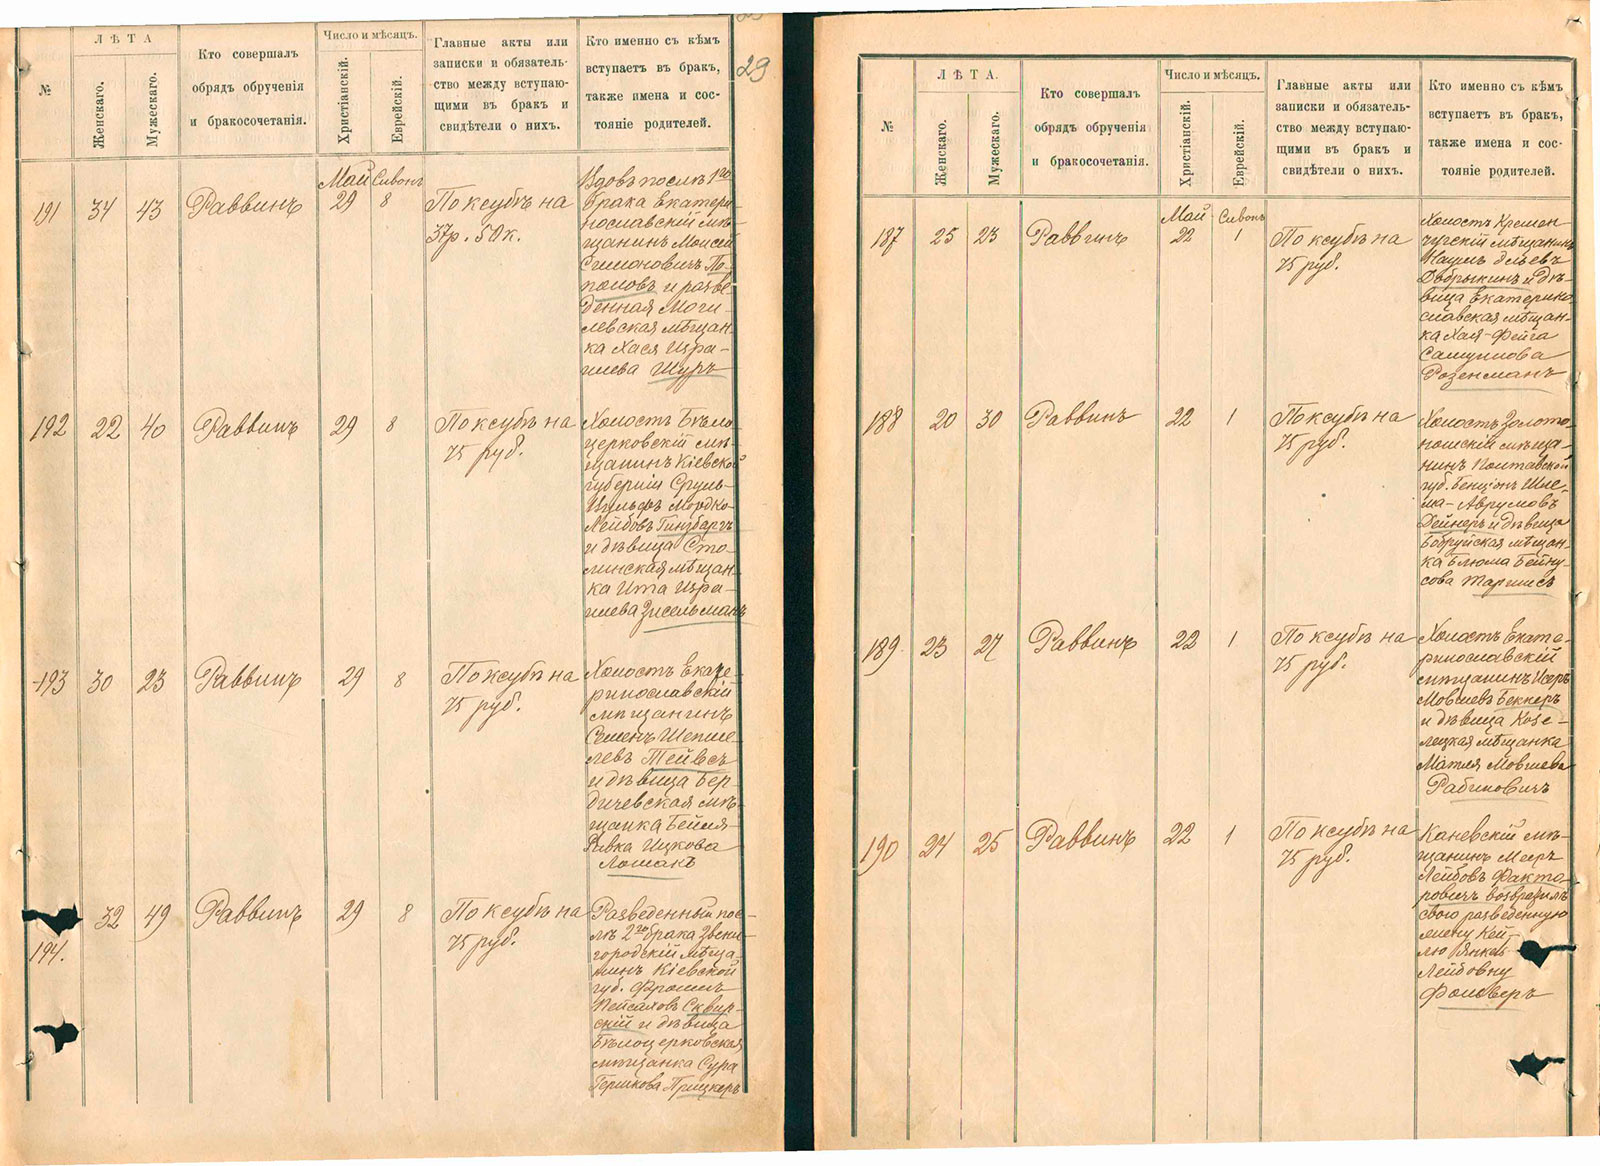 29
№
ЛѢТА
Женскаго.
Мужескаго.
Кто совершалъ
обрядъ обрученія
и бракосочетанія.
Число и мѣсяцъ.
Христіанскій.
Еврейскій.
Главные акты или
записки и обязатель-
ство между вступаю-
щими въ бракъ и
свидѣтели о нихъ.
Кто именно съ кѣмъ
вступаетъ въ бракъ,
также имена и сос-
тояніе родителей.
191 34 43 Раввинъ
Май Сивонъ
29 8
По ксубѣ на
37р. 50к.
Вдовъ послѣ 1го
брака Екатери
нославскій мѣ-
щанинъ Моисей
Симоновичъ По-
половъ и разве-
денная Моги-
левская мѣщан-
ка Хася Изра-
илева Шуръ
192 22 40 Раввинъ 29 8
По ксубѣ на
75 руб.
Холостъ Бѣло
церковскій мѣ-
щанинъ Кіевской
губерніи Сруль-
Вульфъ Мордко-
Лейбовъ Гинзбургъ
и дѣвица Сто-
линская мѣщан-
ка Ита Изра-
илева Зисельманъ
193 30 23 Раввинъ 29 8
По ксубѣ на
75 руб.
Холостъ Екате-
ринославскій
мѣщанинъ
Семенъ Шепше-
левъ Тейвсъ
и дѣвица Бер-
дичевская мѣ-
щанка Бейля-
Ривка Ицкова
Лошакъ
194. 32 49 Раввинъ 29 8
По ксубѣ на
75 руб.
Разведенный пос-
лѣ 2го брака Звени-
городскій мѣща-
нинъ Кіевской
губ. Фроимъ
Пейсаховъ Сквир-
скій и дѣвица
Бѣлоцерковская
мѣщанка Сура
Гершкова Прицкеръ
№
ЛѢТА.
Женскаго.
Мужескаго.
Кто совершалъ
обрядъ обрученія
и бракосочетанія.
Число и мѣсяцъ.
Христіанскій.
Еврейскій.
Главные акты или
записки и обязатель-
ство между вступаю-
щими въ бракъ и
свидѣтели о нихъ.
Кто именно съ кѣмъ
вступаетъ въ бракъ,
также имена и сос-
тояніе родителей.
187 25 23 Раввинъ
Май Сивонъ
22 1
По ксубѣ на
75 руб.
Холостъ Кремен-
чугскій мѣщанинъ
Наумъ Эльевъ
Добрыкинъ и дѣ-
вица Екатерино
славская мѣщан-
ка Хая-Фейга
Самуилова
Розенманъ
188 20 30 Раввинъ 22 1
По ксубѣ на
75 руб.
Холостъ Золото
ношскій мѣща-
нинъ Полтавской
губ. Бенціонъ Шле-
ма-Аврумовъ
Дейнеръ и дѣвица
Бобруйская мѣщан-
ка Блюма Бейну-
сова Таргисъ
189 23 27 Раввинъ 22 1
По ксубѣ на
75 руб.
Холостъ Екате-
ринославскій
мѣщанинъ Исеръ
Мовшевъ Беккеръ
и дѣвица Козе-
лецкая мѣщанка
Матля Мовшева
Рабиновичъ
190 24 25 Раввинъ 22 1
По ксубѣ на
75 руб.
Каневскій мѣ-
щанинъ Мееръ
Лейбовъ Факто-
ровичъ возвратилъ
свою разведенную
жену Кей-
лю Янкель
Лейбовну
Фаиоверъ